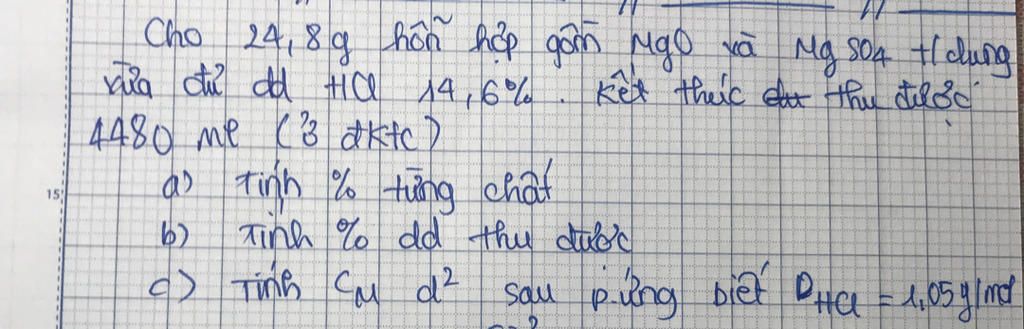 Cho 24,8g hỗn hợp gồm MgO và MgSO4 t/dụng
vừa đủ dd HCl 14,6%. Kết thúc thu được
4480 ml (ở đktc)
15
a) Tính % từng chất
b) Tính % dd thu được
c) Tính CM d² sau p.ứng biết DHCl = 1,05g/ml